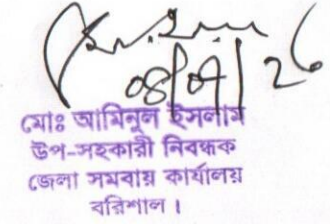 ০৪/০৭/২৬
মোঃ আমিনুল ইসলাম
উপ-সহকারী নিবন্ধক
জেলা সমবায় কার্যালয়
বরিশাল।